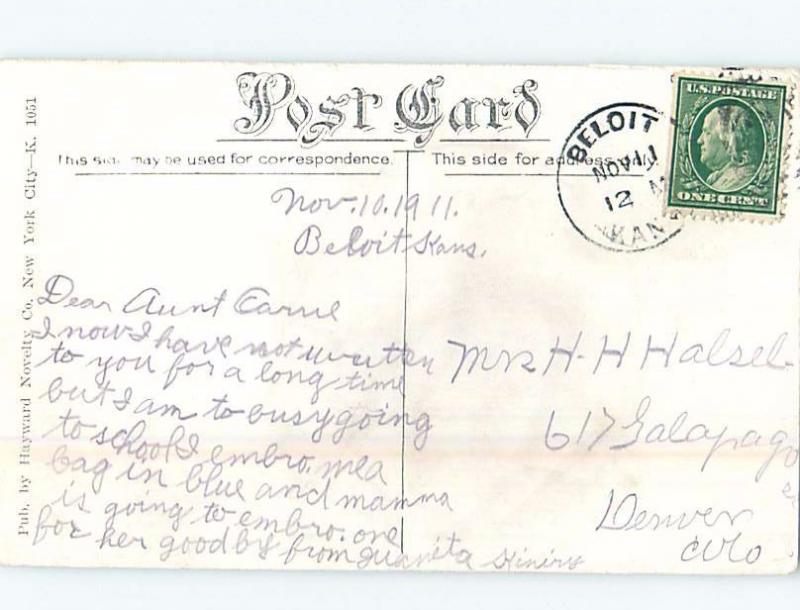 Post Card
This side may be used for correspondence.
This side for address only
BELOIT
NOV 11
12 M
KAN
U.S. POSTAGE
ONE CENT
Pub. by Hayward Novelty Co. New York City—K. 1051
Nov. 10. 1911.
Beloit Kans.
Dear Aunt Carrie
I now I have not written
to you for a long time
but I am to busy going
to school I embro. me a
bag in blue and mamma
is going to embro. one
for her good by from Juanita
Mrs H. H Halsel
617 Galapago
Denver
Colo